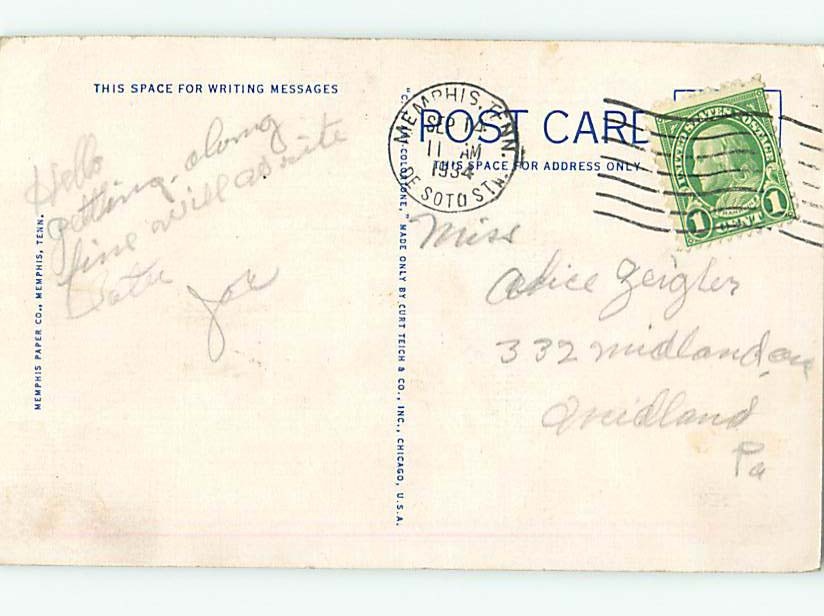 THIS SPACE FOR WRITING MESSAGES
Hello
getting along
fine will write
Later
Joe
MEMPHIS PAPER CO., MEMPHIS, TENN.
"C.T. COLORTONE," MADE ONLY BY CURT TEICH & CO., INC., CHICAGO, U.S.A.
MEMPHIS, TENN.
SEP 14
11 AM
1934
DE SOTO STA.
POST CARD
THIS SPACE FOR ADDRESS ONLY
UNITED STATES POSTAGE
1 CENT 1
Miss
Alice Zeigler
332 Midland ave
Midland
Pa